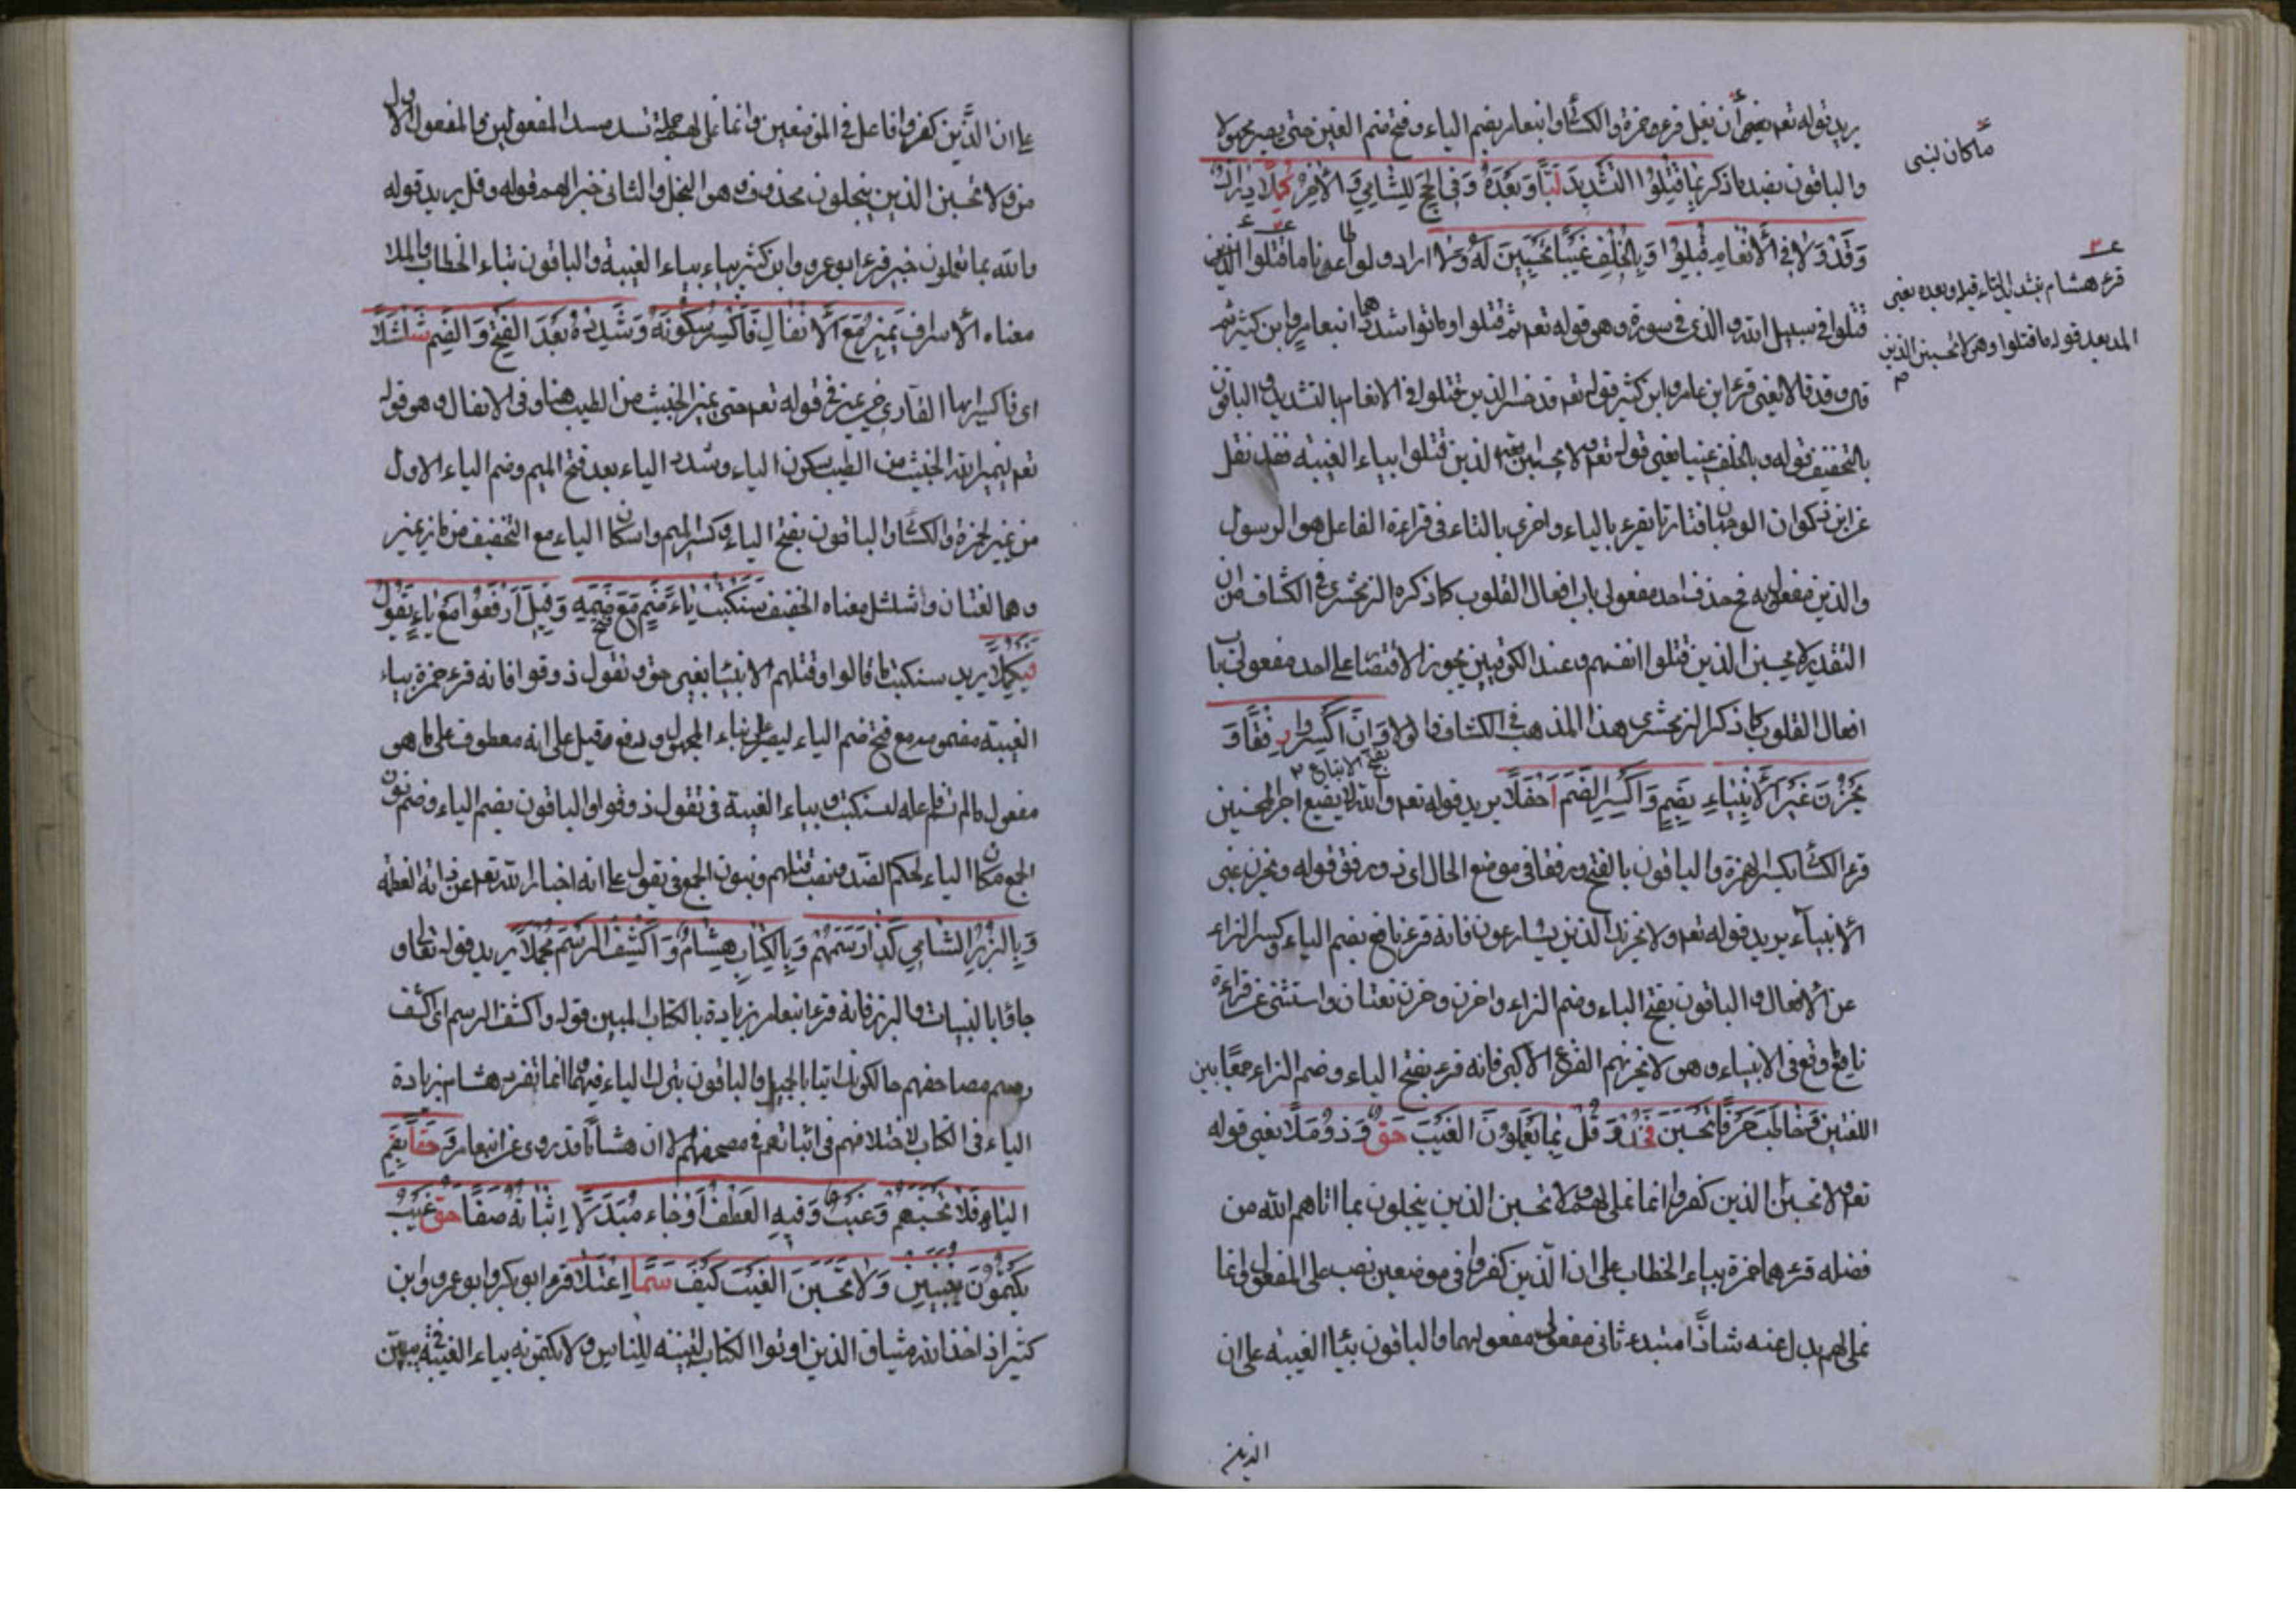 يريد قوله تعم يعنى أن يغل قرء حمزة والكسائى وابنعامر بضم الياء وفتح ضم الغين حتى يصير مجهولا
والباقون بضد ماذكر بِمَا قُتِلُوا التَّشْدِيدَ لَبَّا وَبَعْدَهُ وَفِى الحَجِّ لِلشَّامِي وَالآخِرُ كَمَّلَا دِرَاكِ
وَقَدْ وَلَا فِى الأَنْعَامِ قُتِلُوا وَبِالْخُلْفِ غَيْبًا تَحْسَبَنَّ لَهُ وَلَا اراد لو اطاعونا ما قتلوا الذين
قتلوا فى سبيل الله والذى فى سورة وهو قوله تعم ثم قتلوا او ماتوا شددهما ابنعامر وابن كثير ثم
قال وقد قالا يعنى قرء ابن عامر وابن كثير قوله تعم قد خسر الذين قتلوا فى الانعام بالتشديد والباقون
بالتخفيف قوله وبالخلف غيبا يعنى قوله تعم ولا يحسبن الذين قتلوا بياء الغيبة فقد نقل
عن ابن ذكوان الوجهان فتارتا يقرء بالياء واخرى بالتاء فى قراءة الفاعل هو الرسول
والذين مفعول به فحذف احد مفعولى باب افعال القلوب كما ذكره الزمخشرى فى الكشاف من ان
التقدير لا يحسبن الذين قتلوا انفسهم وعند الكوفيين يجوز الاقتصا على احد مفعولى باب
افعال القلوب كما ذكر الزمخشرى هذا المذهب فى الكشاف اولا وَأَنَّ اكْسِرُوا رِفْقًا وَ
يَحْزُنُ غَيْرَ الأَنْبِيَاءِ بِضَمٍّ وَاكْسِرِ الضَّمَّ أَحْفَلَا يريد قوله تعم وان الله لا يضيع اجر المحسنين
قرء الكسائى بكسر الهمزة والباقون بالفتح ورفقا فى موضع الحال اى ذو رفق قوله ويحزن غير
الأنبياء يريد قوله تعم ولا يحزنك الذين يسارعون فانه قرء نافع بضم الياء وكسر الزاء
عن الافعال والباقون بفتح الياء وضم الزاء واحزن وحزن لغتان واستثنى عن قراءة
نافع وقع فى الانبياء وهو لا يحزنهم الفزع الاكبر فانه قرء بفتح الياء وضم الزاء جمعا بين
اللغتين وَخَاطَبَ حَرْفَا تَحْسَبَنَّ فَخُذْ وَقُلْ بِمَا يَعْمَلُونَ الغَيْبَ حَقٌّ وَذُو مَلَا يعنى قوله
تعم ولا تحسبن الذين كفروا انما نملى لهم ولا تحسبن الذين يبخلون بما اتاهم الله من
فضله قرءهما حمزة بياء الخطاب على ان الّذين كفروا فى موضعين نصب على المفعول وانما
نملى لهم بدل عنه شاذًا مسد ثانى مفعولى مفعولهما والباقون بياا الغيبه على ان
الذين
ماكان لنبى
قرء هشام بتشديد التاء قبل وبعده يعنى
المد بعد قوله ما قتلوا وهو لا تحسبن الذين
على ان الذّين كفروا فاعل فى الموضعين وانما نملى لهم جملة تسد مسد المفعولين والمفعول الاول
من ولا تحسبن الذين يبخلون محذوف وهو البخل والثانى خير الهم قوله وقل يريد قوله
والله بما تعملون خبير قرء ابو عمرو وابن كثير بياء الغيبة والباقون بتاء الخطاب والملا
معناه الأسراف يَمِيزَ مَعَ الأَنْفَالِ فَاكْسِرْ سُكُونَهُ وَشَدِّدْهُ بَعْدَ الفَتْحِ وَالضَّمِّ شُلْشُلَا
اى فاكسر ايها القارى يميز فى قوله تعم حتى يميز الخبيث من الطيب هنا وفى الانفال وهو قوله
تعم ليميز الله الخبيث من الطيب سكون الياء وشدد الياء بعد فتح الميم وضم الياء الاول
من يميز لحمزة والكسائى والباقون بفتح الياء وكسر الميم واسكان الياء مع التخفيف من ماز يميز
وهما لغتان وشلشل معناه الخفيف سَنَكْتُبُ يَاءٌ ضُمَّ مَعَ فَتْحِ ضَمِّهِ وَقَتْلَ ارْفَعُوا مَعْ يَاءِ يَقُولُ
فَيَكْمُلَا يريد سنكتب ما قالوا وقتلهم الانبيا بغير حق ونقول ذوقوا فانه قرء حمزة بياء
الغيبة مضمومه مع فتح ضم الياء ليصير على بناء المجهول ورفع وقتل على انه معطوف على ما هو
مفعول مالم تسم فاعله لسنكتب وبياء الغيبة فى نقول ذوقوا والباقون بضم الياء وضم نون
الجمع مكان الياء لحكم الضد ونصب قتلهم وبنون الجمع فى نقول على انه اخبار الله تعم عن ذاته العظمه
وَبِالزُّبُرِ الشَّامِي كَذَا رَسْمُهُمْ وَبِالْكِتَابِ هِشَامٌ وَاكْشِفِ الرَّسْمَ مُجْمِلَا يريد قوله تعالى و
جاؤا بالبينات والزبر فانه قرء ابنعامر بزيادة بالكتاب المبين قوله واكشف الرسم اى اكشف
رسم مصاحفهم حالكونك اتيا بالجميل والباقون بترك الياء فيهما وانما تفرد هشام بزيادة
الياء فى الكتاب لاختلافهم فى اثباتهم فى مصحفهم لان هشاما قد روى عن ابنعامر وَحَقًّا بِضَمِّ
البَاءِ فَلَا تَحْسَبَنَّهُمْ وَغَيْبٌ وَفِيهِ العَطْفُ أَوْ جَاءَ مُبْدَلَا اثباته صَفَا حَقُّ غَيْبٍ
يَكْتُمُونَ يُبَيِّنُنَّ وَلَا تَحْسَبَنَّ الغَيْبَ كَيْفَ سَمَا اعْتَلَا قرء ابو بكر وابو عمرو وابن
كثير اذ اخذ الله ميثاق الذين اوتوا الكتاب لتبيننه للناس ولا يكتمونه بياء الغيبة